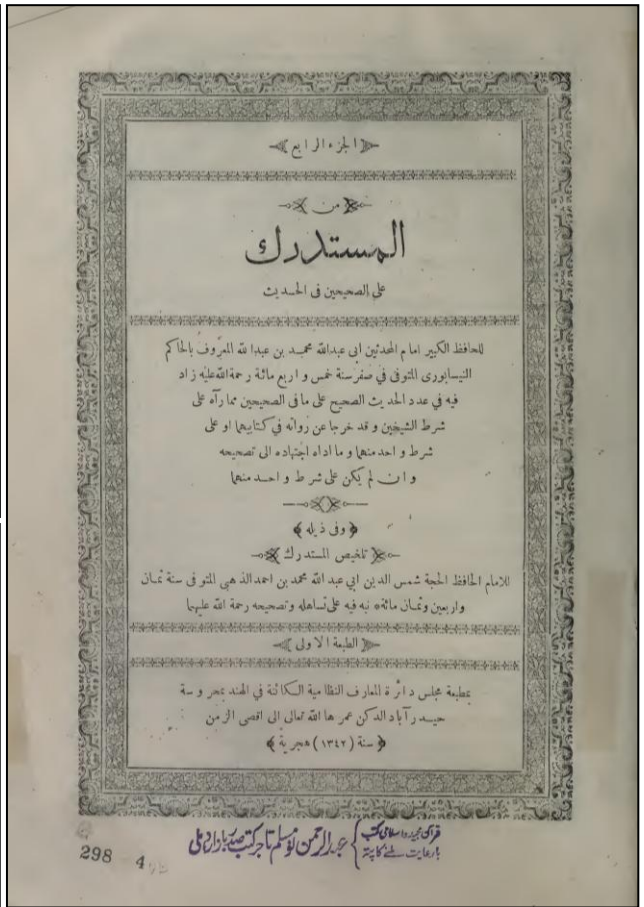 الجزء الرابع
من
المستدرك
على الصحيحين في الحديث
للحافظ الكبير امام المحدثين ابي عبدالله محمد بن عبدالله المعروف بالحاكم
النيسابورى المتوفى في صفر سنة خمس و اربع مائة رحمة الله عليه زاد
فيه في عدد الحديث الصحيح على ما فى الصحيحين مما رآه على
شرط الشيخين و قد خرجا عن رواته في كتابيهما او على
شرط و احد منهما و ما اداه اجتهاده الى تصحيحه
و ان لم يكن على شرط و احد منهما
﴿ وفى ذيله ﴾
تلخيص المستدرك
للامام الحافظ الحجة شمس الدين ابي عبد الله محمد بن احمد الذهبي المتوفى سنة ثمان
واربعين وثمان مائة نبه فيه على تساهله وتصحيحه رحمة الله عليهما
الطبعة الاولى
بمطبعة مجلس دائرة المعارف النظامية الكائنة في الهند بمحروسة
حيدر آباد الدكن عمرها الله تعالى الى اقصى الزمن
﴿ سنة (١٣٤٢) هجرية ﴾
قرآن مجید و اسلامی کتب
بارعایت ملنے کا پتہ
عبد الرحمن نومسلم تاجر کتب صدر بازار دہلی
298 4